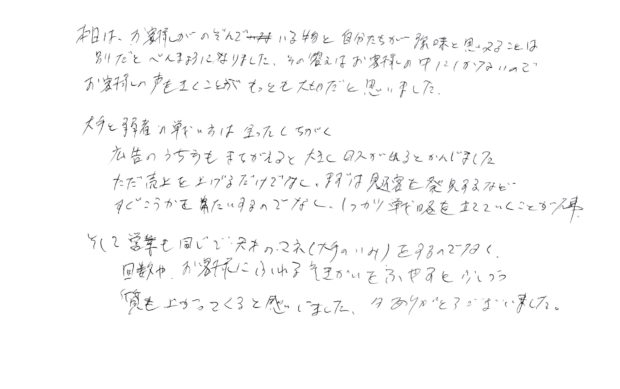 本日は、お客様がのぞんでいる物と自分たちが強味と思ってることは
別だとべんきょうになりました。その答えはお客様の中にしかないので
お客様の声をきくことがもっとも大切だと思いました。
大手と弱者の戦い方は全ったくちがく
広告のうち方もまちがえると大きくロスが出るとかんじました
ただ売上を上げるだけでなく、まずは見込客を発見するなど
すぐこうかを期たいするのでなく、しっかり戦略を立てていくことが大事
そして営業も同じで天才のマネ(大手のいみ)をするのでなく、
回数や、お客様にふれるきかいをふやすと少しづつ
質も上がってくると感じました、 ありがとうございました。